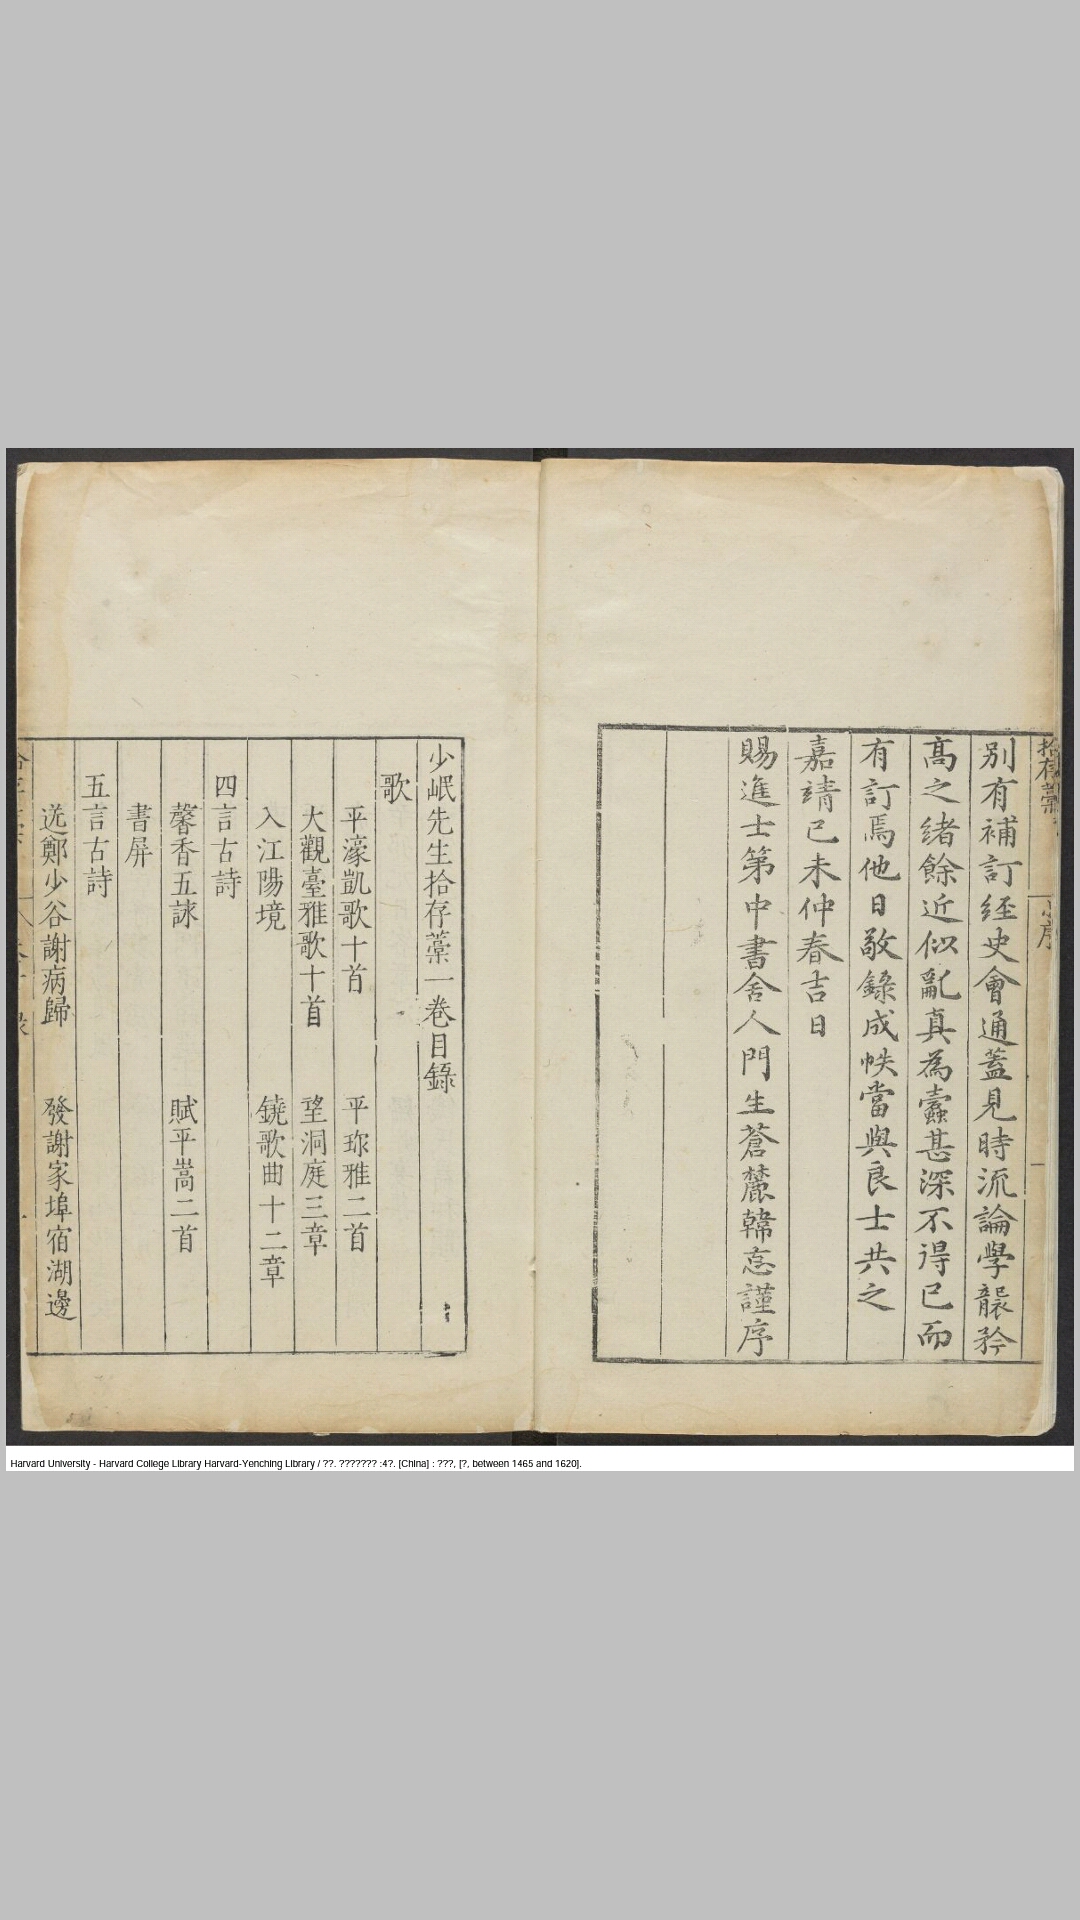 別有補訂経史會通蓋見時流論學齦矜
髙之緒餘近似亂真為蠹甚深不得已而
有訂焉他日敬錄成帙當與良士共之
嘉靖己未仲春吉日
賜進士第中書舍人門生蒼麓韓 謹序
少岷先生拾存藁一巻目錄
歌
平濠凱歌十首 平琢雅二首
大觀臺雅歌十首 望洞庭三章
入江陽境 鐃歌曲十二章
四言古詩
馨香五詠 賦平嵩二首
書屏
五言古詩
送鄭少谷謝病歸 發謝家埠宿湖邊
Harvard University - Harvard College Library Harvard-Yenching Library / ??. ??????? :4?. [China] : ???, [?, between 1465 and 1620].